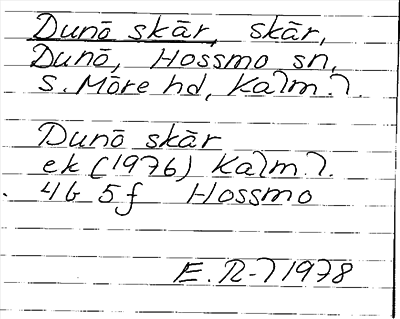 Dunö skär, skär,
Dunö, Hossmo sn,
S. Möre hd, Kalm.l.
Dunö skär
ek (1976) Kalm.l.
4G 5f Hossmo
E.R-l 1978